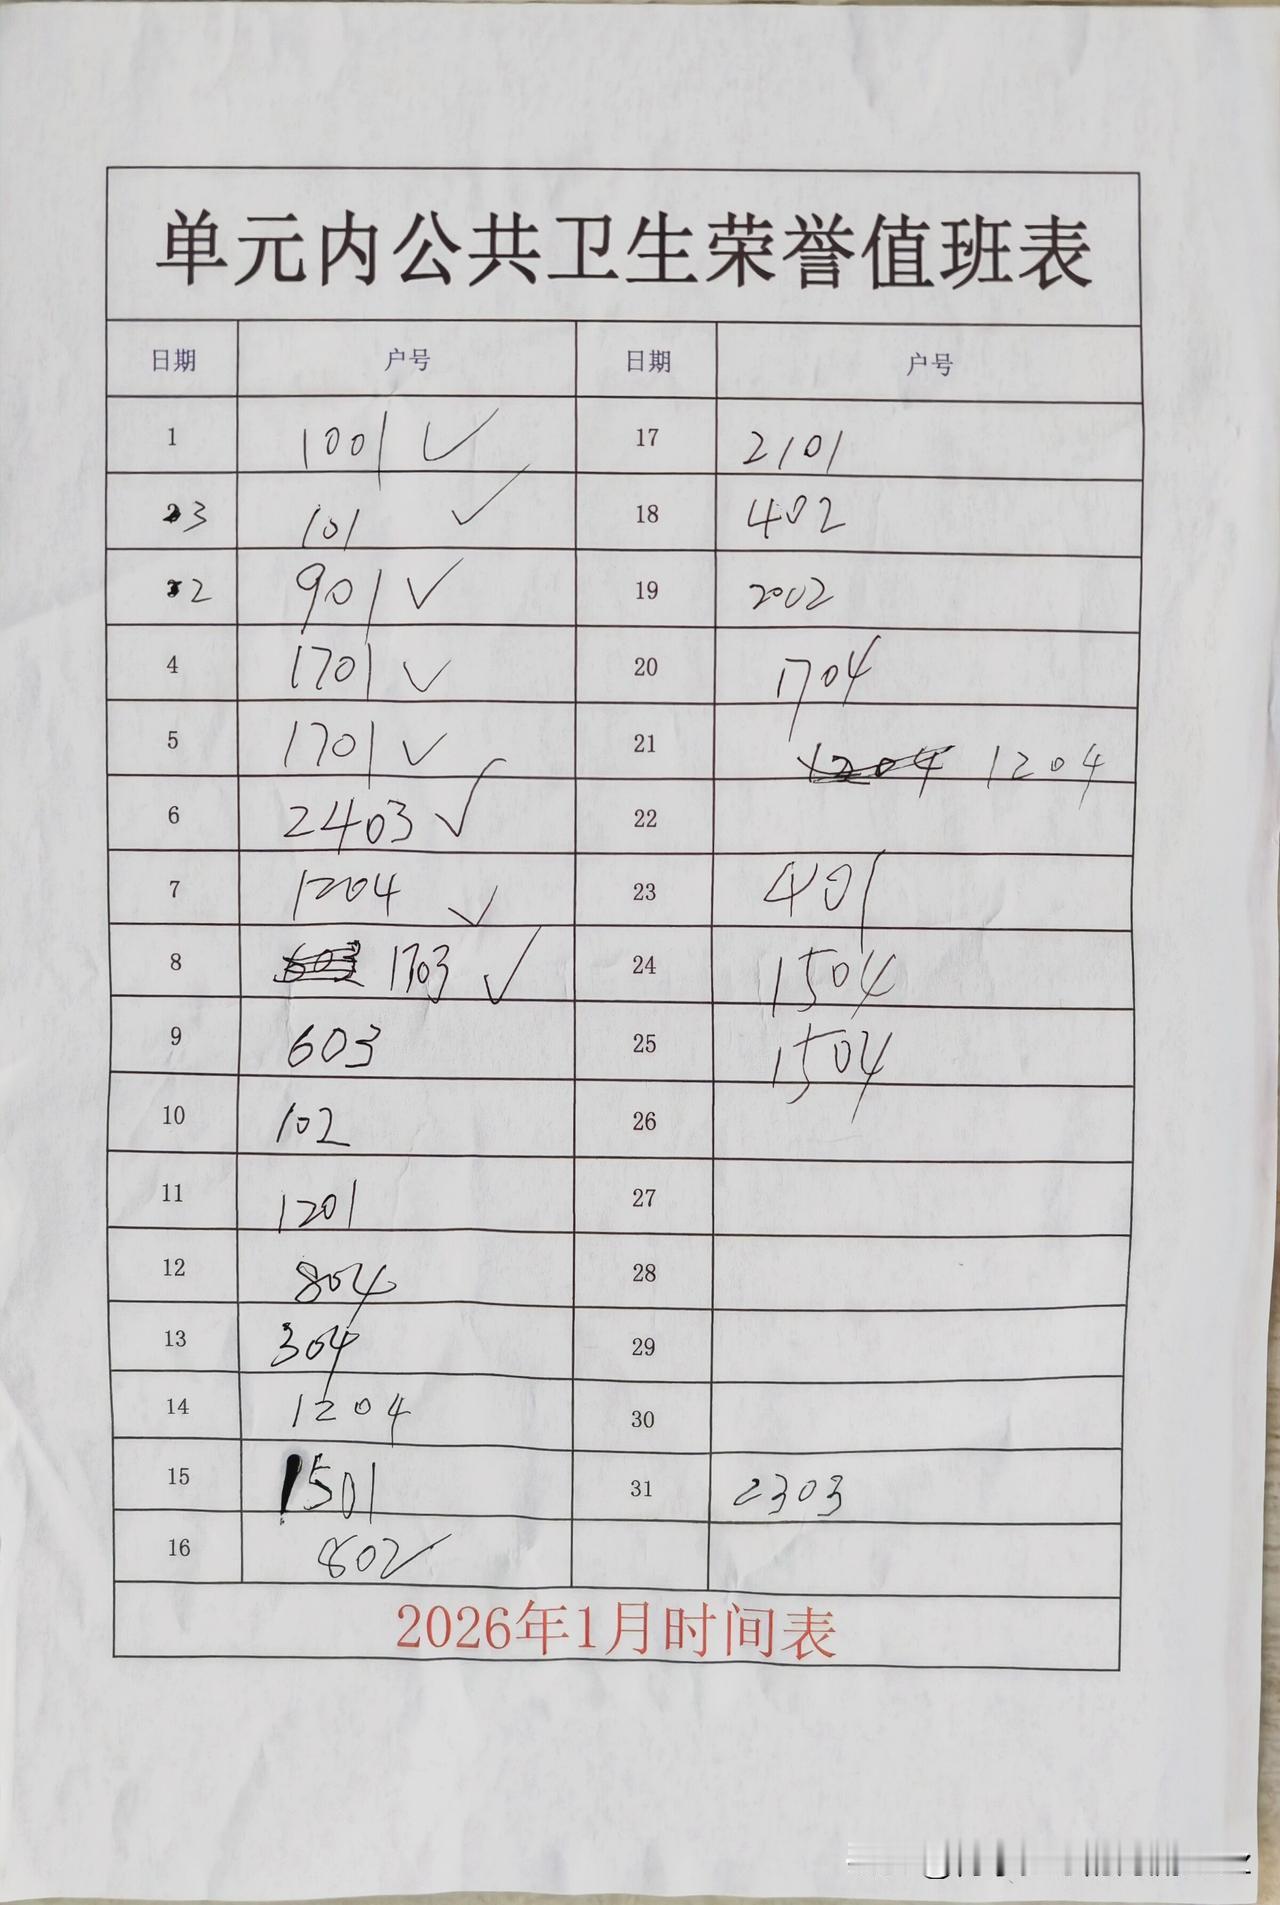 单元内公共卫生荣誉值班表
日期 户号 日期 户号
1 1001 ✓ 17 2101
3 101 ✓ 18 402
2 901 ✓ 19 2002
4 1701 ✓ 20 1704
5 1701 ✓ 21 1204 1204
6 2403 ✓ 22
7 1204 ✓ 23 401
8 603 1703 ✓ 24 1504
9 603 25 1504
10 102 26
11 1201 27
12 804 28
13 304 29
14 1204 30
15 1501 31 2303
16 802
2026年1月时间表